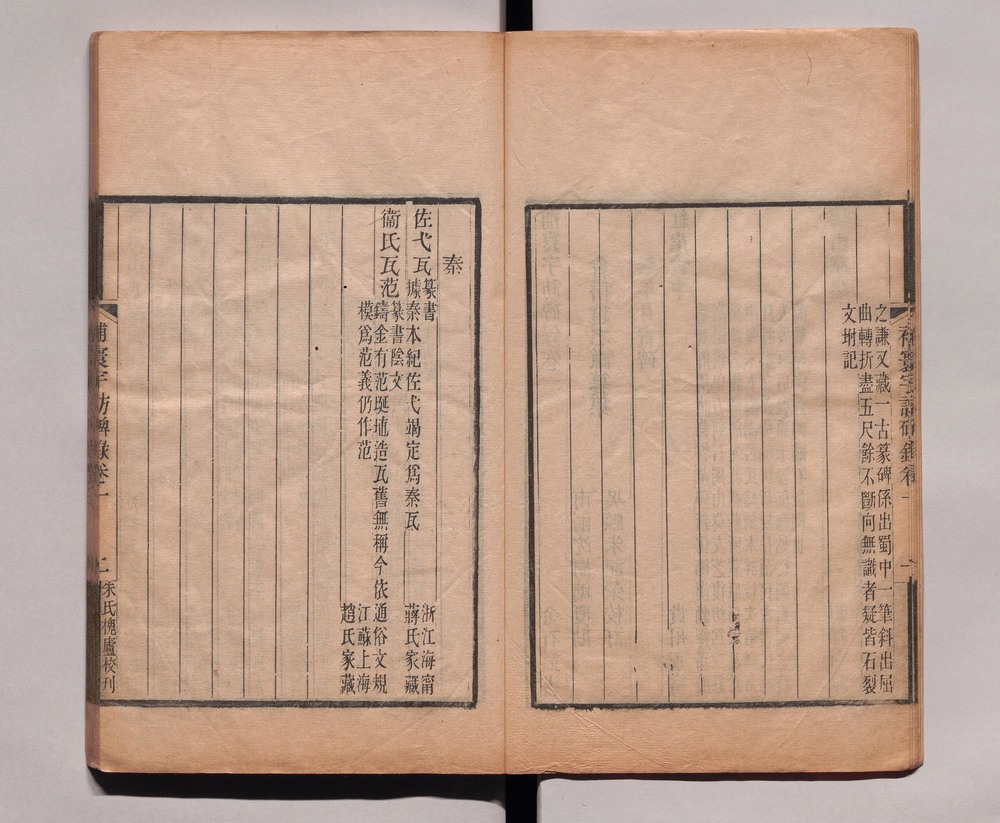 之謙又藏一古篆碑係出蜀中一筆斜出屈
曲轉折盡五尺餘不斷向無識者疑皆石裂
文坿記
補寰宇訪碑錄卷一
一
秦
佐弋瓦
篆書
據秦本紀佐弋竭定爲秦瓦
浙江海甯
蔣氏家藏
衞氏瓦范
篆書陰文
鑄金有范埏埴造瓦舊無稱今依通俗文規
模爲范義仍作范
江蘇上海
趙氏家藏
補寰宇訪碑錄卷一
二
朱氏槐廬校刊